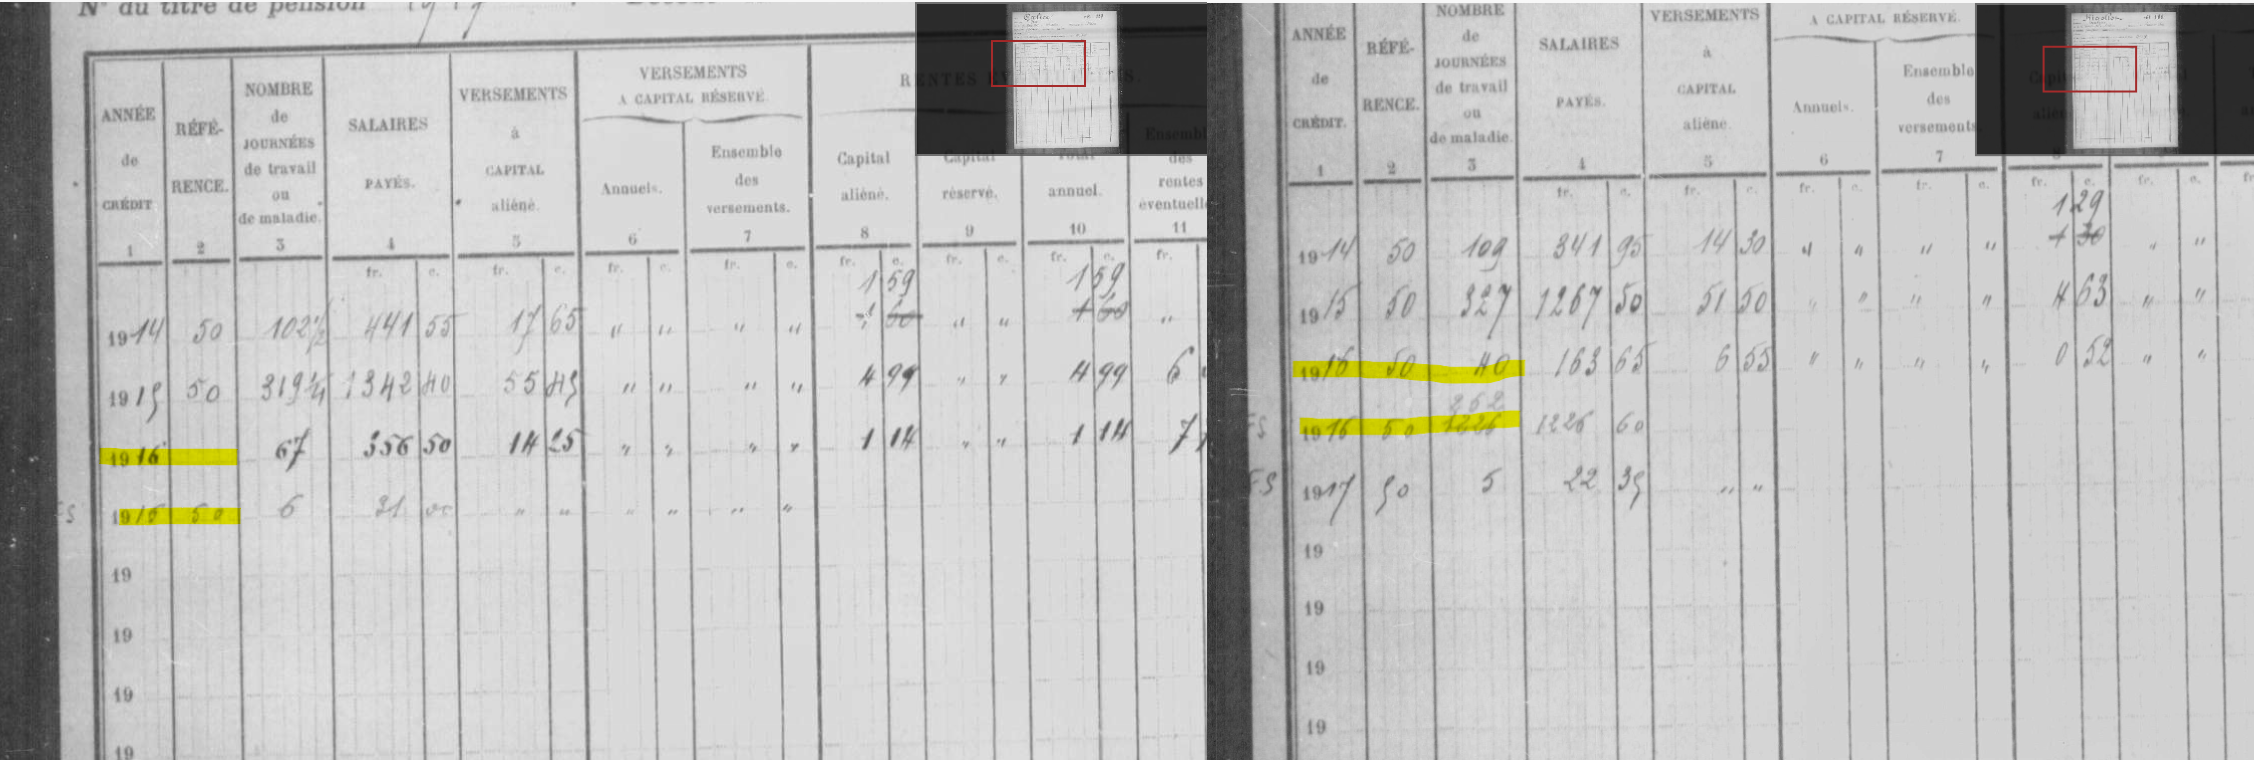 N° du titre de pension
ANNÉE de CRÉDIT 1
RÉFÉ- RENCE. 2
NOMBRE de JOURNÉES de travail ou de maladie. 3
SALAIRES PAYÉS. 4
VERSEMENTS à CAPITAL aliéné. 5
VERSEMENTS A CAPITAL RÉSERVÉ
Annuels. 6
Ensemble des versements. 7
Capital aliéné. 8
Capital réservé. 9
annuel. 10
des rentes 11
fr. c. fr. c. fr. c. fr. c. fr. c. fr. c. fr. c. fr.
1 59 1 59
1914 50 102 1/2 441 55 17 65 " " " " 1 60 " " 1 60 "
1915 50 319 1/4 1342 40 55 45 " " " " 4 99 " " 4 99 6
1916 67 356 50 14 25 " " " " 1 14 " " 1 14 7
1915 50 6 31 00 " " " "
19
19
19
19
ANNÉE de CRÉDIT. 1
RÉFÉ- RENCE. 2
NOMBRE de JOURNÉES de travail ou de maladie. 3
SALAIRES PAYÉS. 4
VERSEMENTS à CAPITAL aliéné. 5
A CAPITAL RÉSERVÉ.
Annuels. 6
Ensemble des versements. 7
fr. c. fr. c. fr. c. fr. c. fr. c. fr. c.
1 29
1914 50 109 341 95 14 30 " " " " 1 30 " "
1915 50 327 1267 50 51 50 " " " " 4 63 " "
1916 50 40 163 65 6 55 " " " " 0 52 " "
252
FS 1916 50 1226 1226 60
FS 1917 50 5 22 35 " "
19
19
19
19